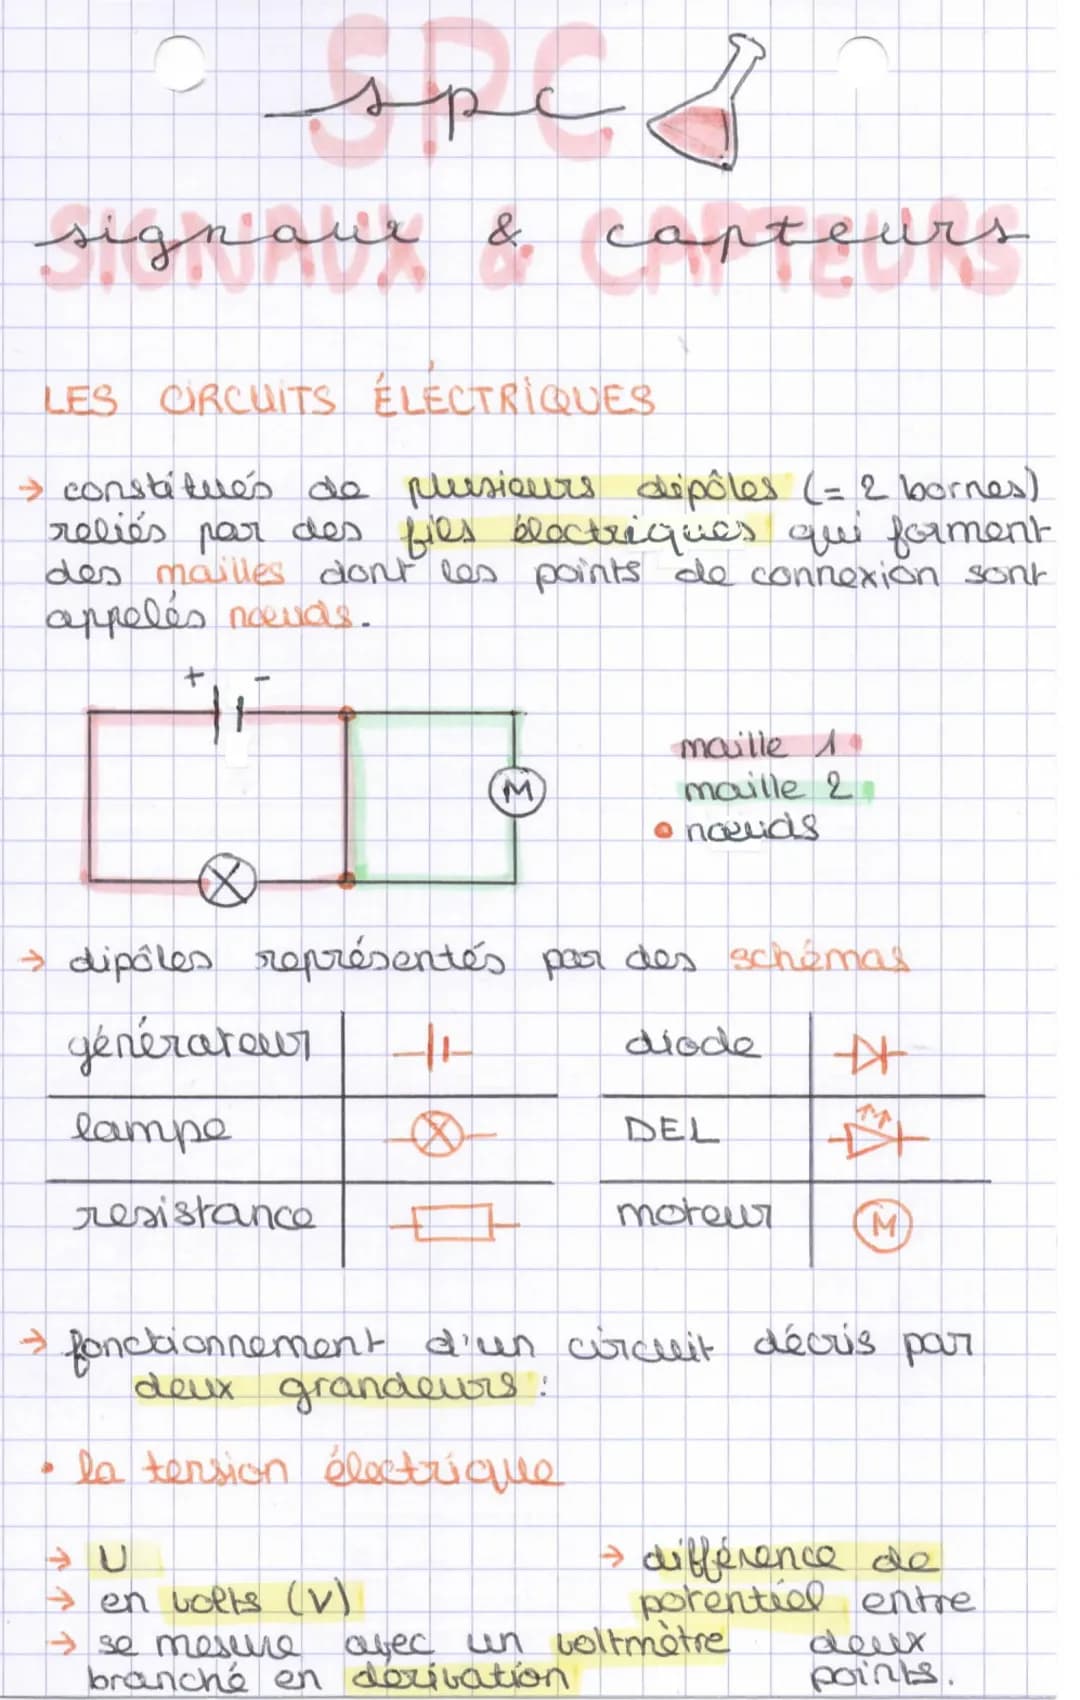 SPC
spc
SIGNAUX & CAPTEURS
signaux & capteurs
LES CIRCUITS ÉLÉCTRIQUES
→ constitués de plusieurs dipôles (= 2 bornes)
reliés par des fils électriques qui forment
des mailles dont les points de connexion sont
appelés nœuds.
+ -
M
maille 1
maille 2
• nœuds
→ dipôles représentés par des schémas
générateur diode
lampe DEL
resistance moteur M
→ fonctionnement d'un circuit décris par
deux grandeurs :
• la tension électrique
→ U
→ en volts (V)
→ se mesure avec un voltmètre
branché en derivation
→ différence de
potentiel entre
deux
points.